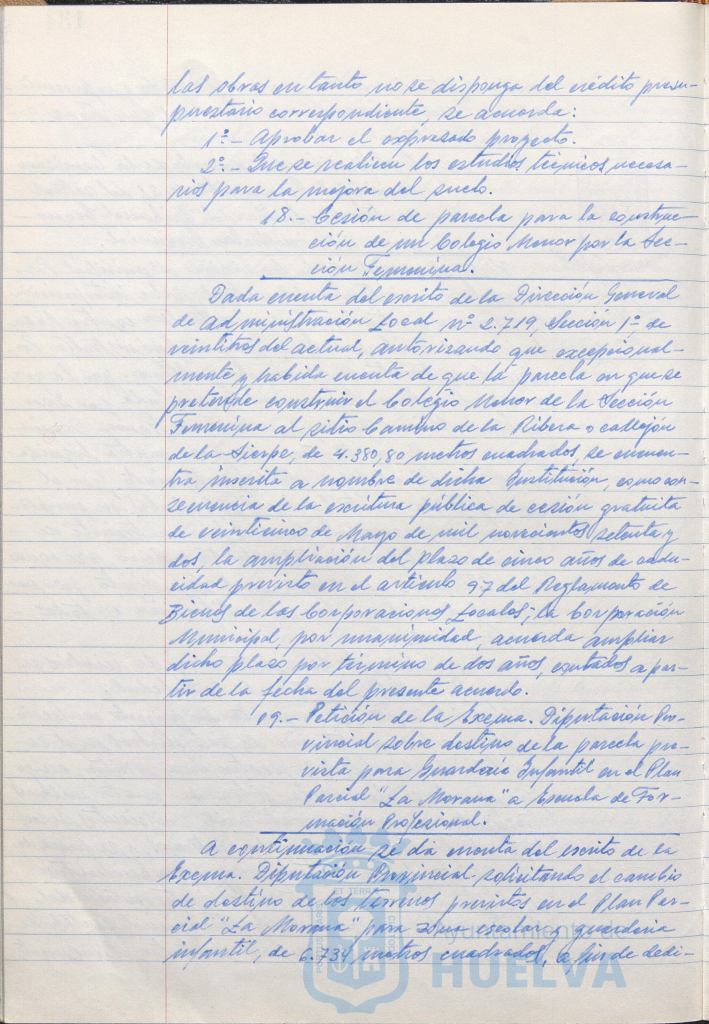 las obras en tanto no se disponga del crédito presu-
puestario correspondiente, se acuerda:
1º.- Aprobar el expresado proyecto.
2º.- Que se realicen los estudios técnicos necesa-
rios para la mejora del suelo.
18.- Cesión de parcela para la construc-
ción de un Colegio Menor por la Sec-
ción Femenina.
Dada cuenta del escrito de la Dirección General
de Administración Local nº 2.719, Sección 1ª de
veintitres del actual, autorizando que excepcional-
mente y habida cuenta de que la parcela en que se
pretende construir el Colegio Menor de la Sección
Femenina al sitio Camino de la Ribera o callejón
de la Sierpe, de 4.380,80 metros cuadrados, se encuen-
tra inscrita a nombre de dicha Institución, como con-
secuencia de la escritura pública de cesión gratuita
de veinticinco de Mayo de mil novecientos setenta y
dos, la ampliación del plazo de cinco años de cadu-
cidad previsto en el artículo 97 del Reglamento de
Bienes de las Corporaciones Locales; la Corporación
Municipal, por unanimidad, acuerda ampliar
dicho plazo por término de dos años, contados a par-
tir de la fecha del presente acuerdo.
19.- Petición de la Excma. Diputación Pro-
vincial sobre destino de la parcela pre-
vista para Guardería Infantil en el Plan
Parcial "La Morana" a Escuela de For-
mación Profesional.
A continuación se da cuenta del escrito de la
Excma. Diputación Provincial solicitando el cambio
de destino de los terrenos previstos en el Plan Par-
cial "La Morana" para zona escolar y guardería
infantil, de 6.734 metros cuadrados, a fin de dedi-
Ayuntamiento de
HUELVA